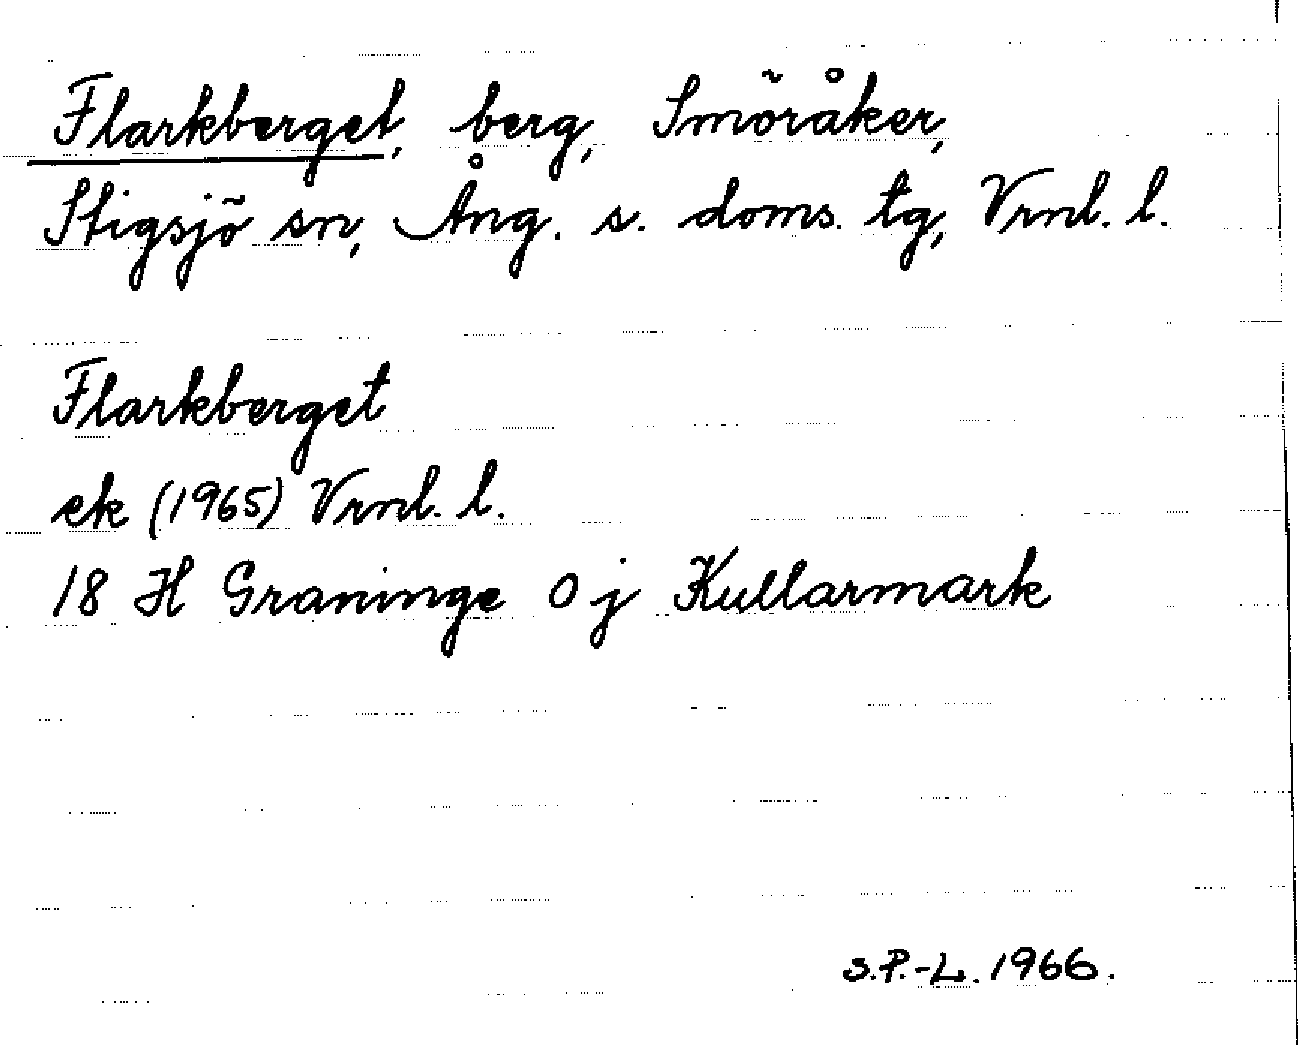 Flarkberget, berg, Smöråker,
Stigsjö sn, Ång. s. doms. tg, Vrnl. l.
Flarkberget
ek (1965) Vrnl. l.
18 H Graninge 0 j Kullarmark
S.P.-L. 1966.